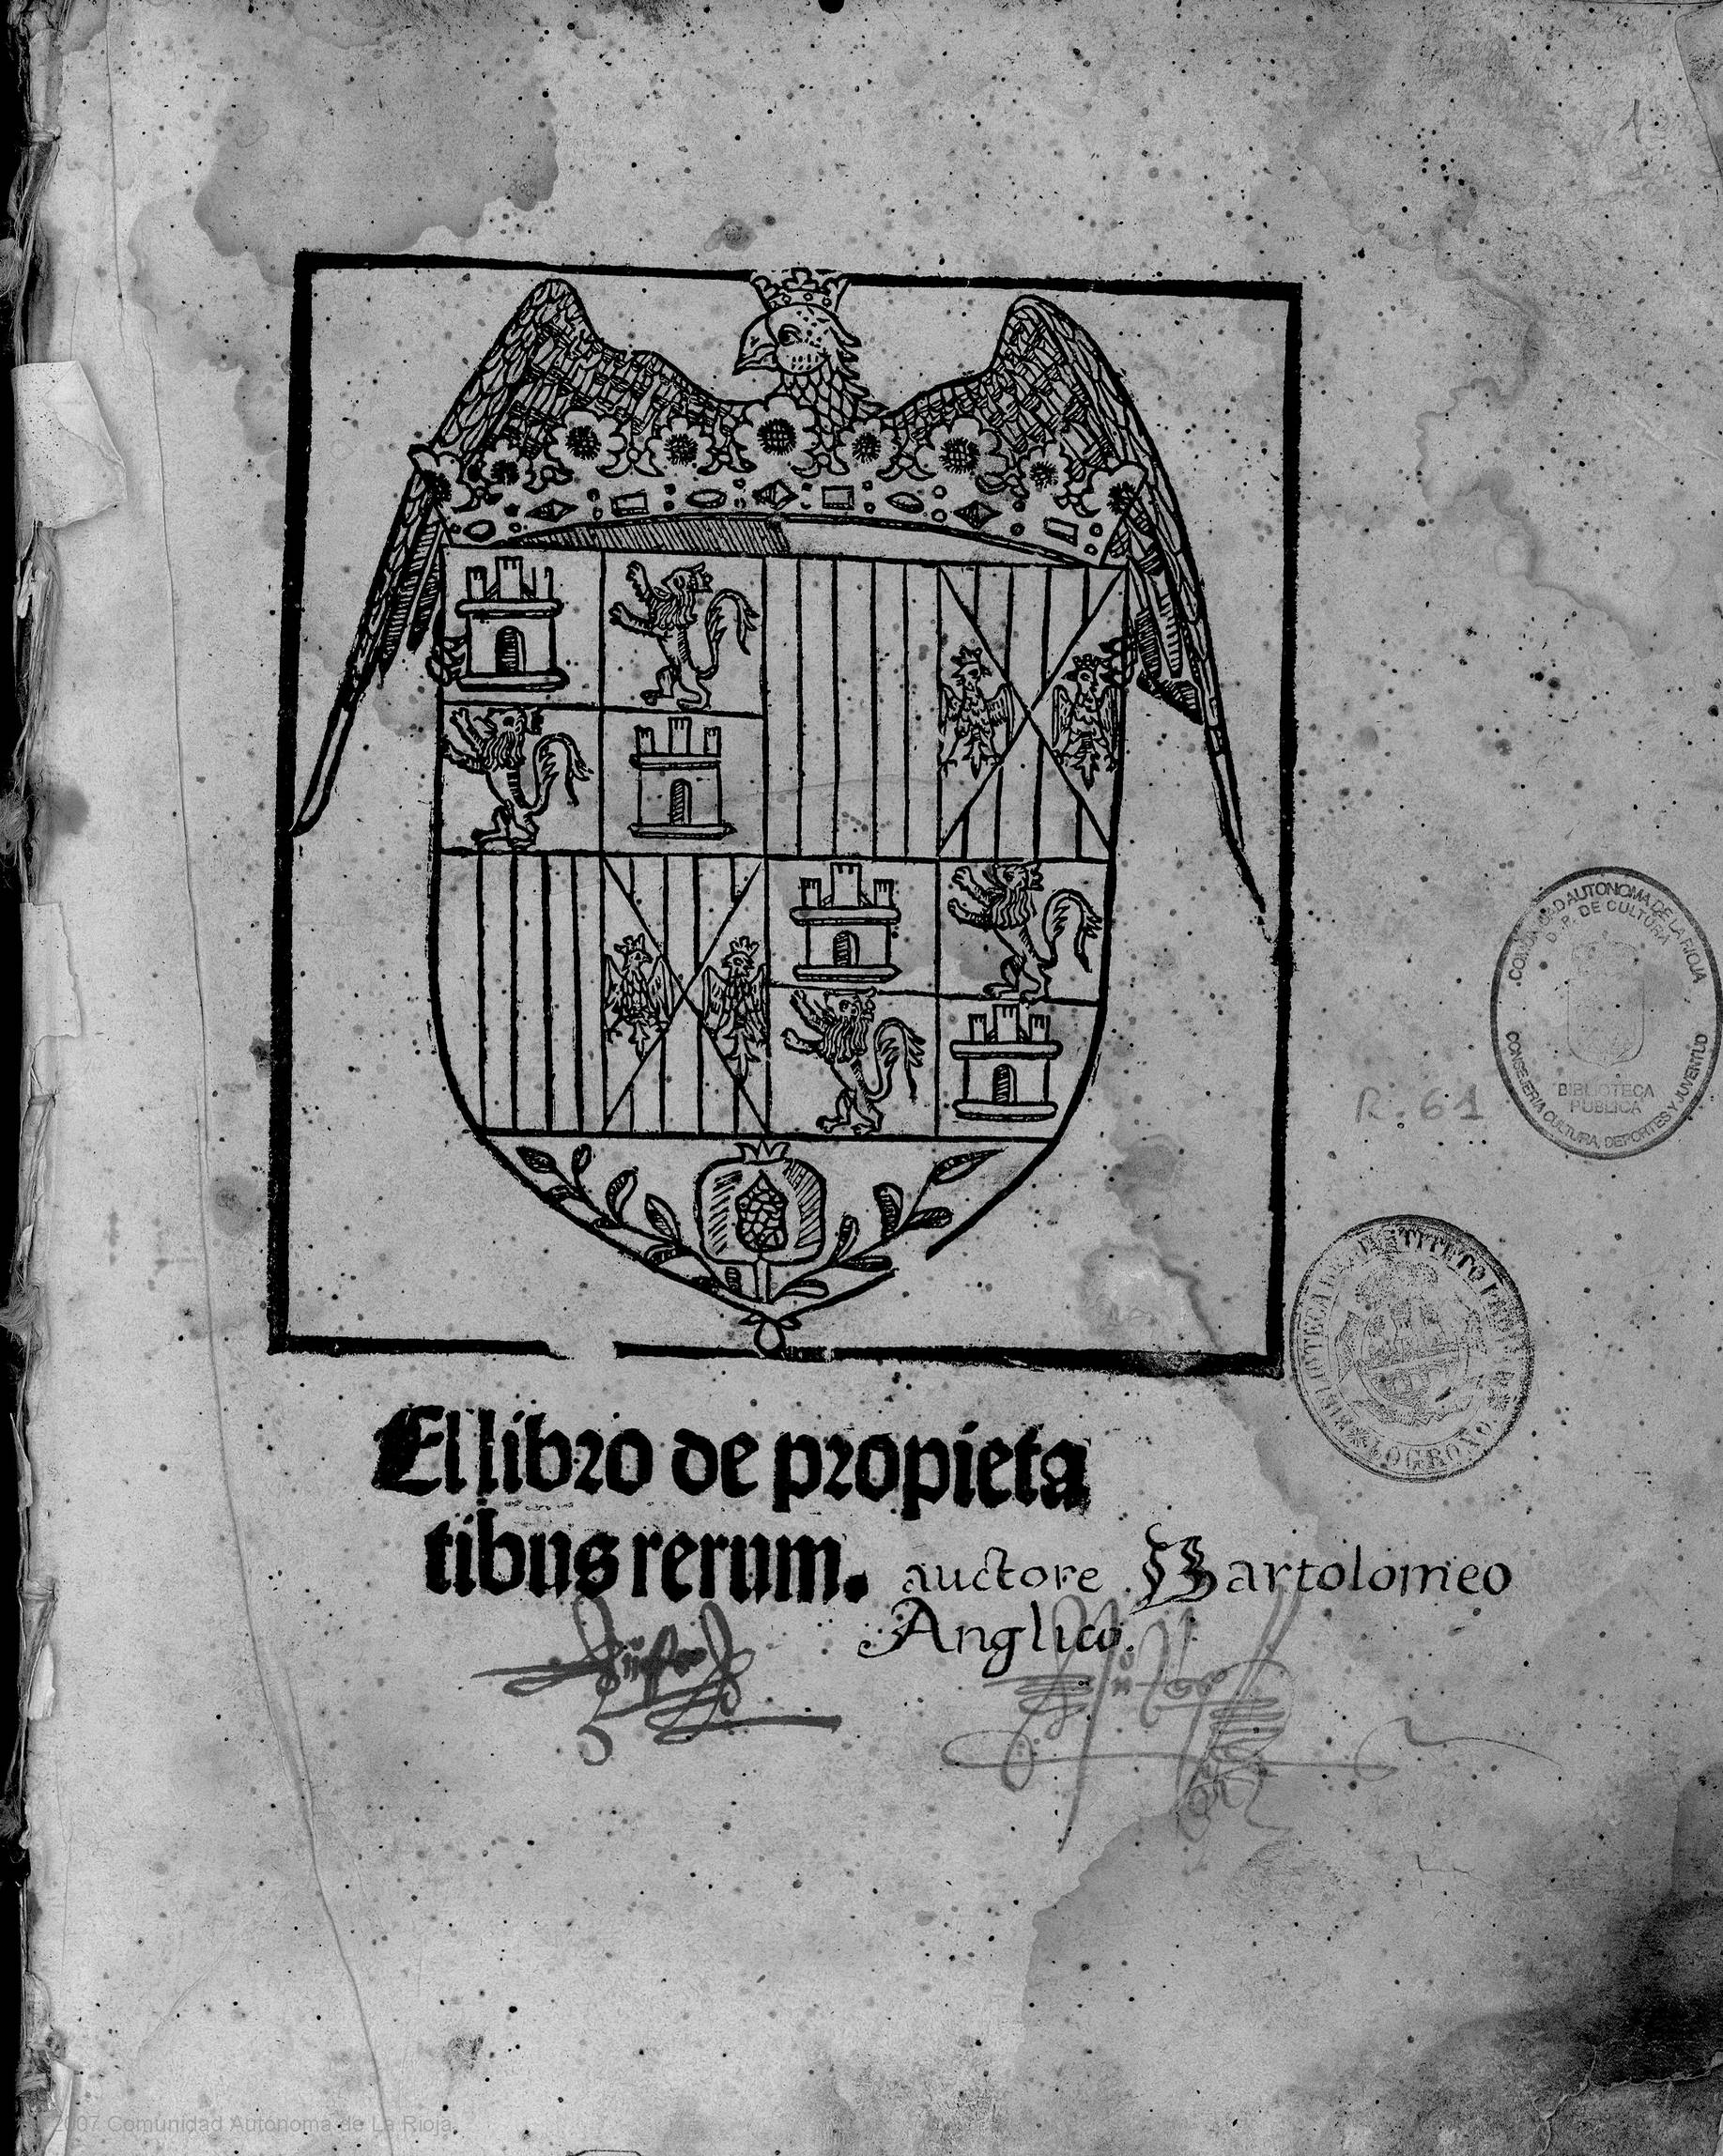 1
El libro de propieta
tibus rerum. auctore Bartolomeo
Anglico.
R. 61
COMUNIDAD AUTONOMA DE LA RIOJA
D. P. DE CULTURA
BIBLIOTECA
PUBLICA
CONSEJERIA CULTURA, DEPORTES Y JUVENTUD
BIBLIOTECA
LOGROÑO
2007 Comunidad Autónoma de La Rioja